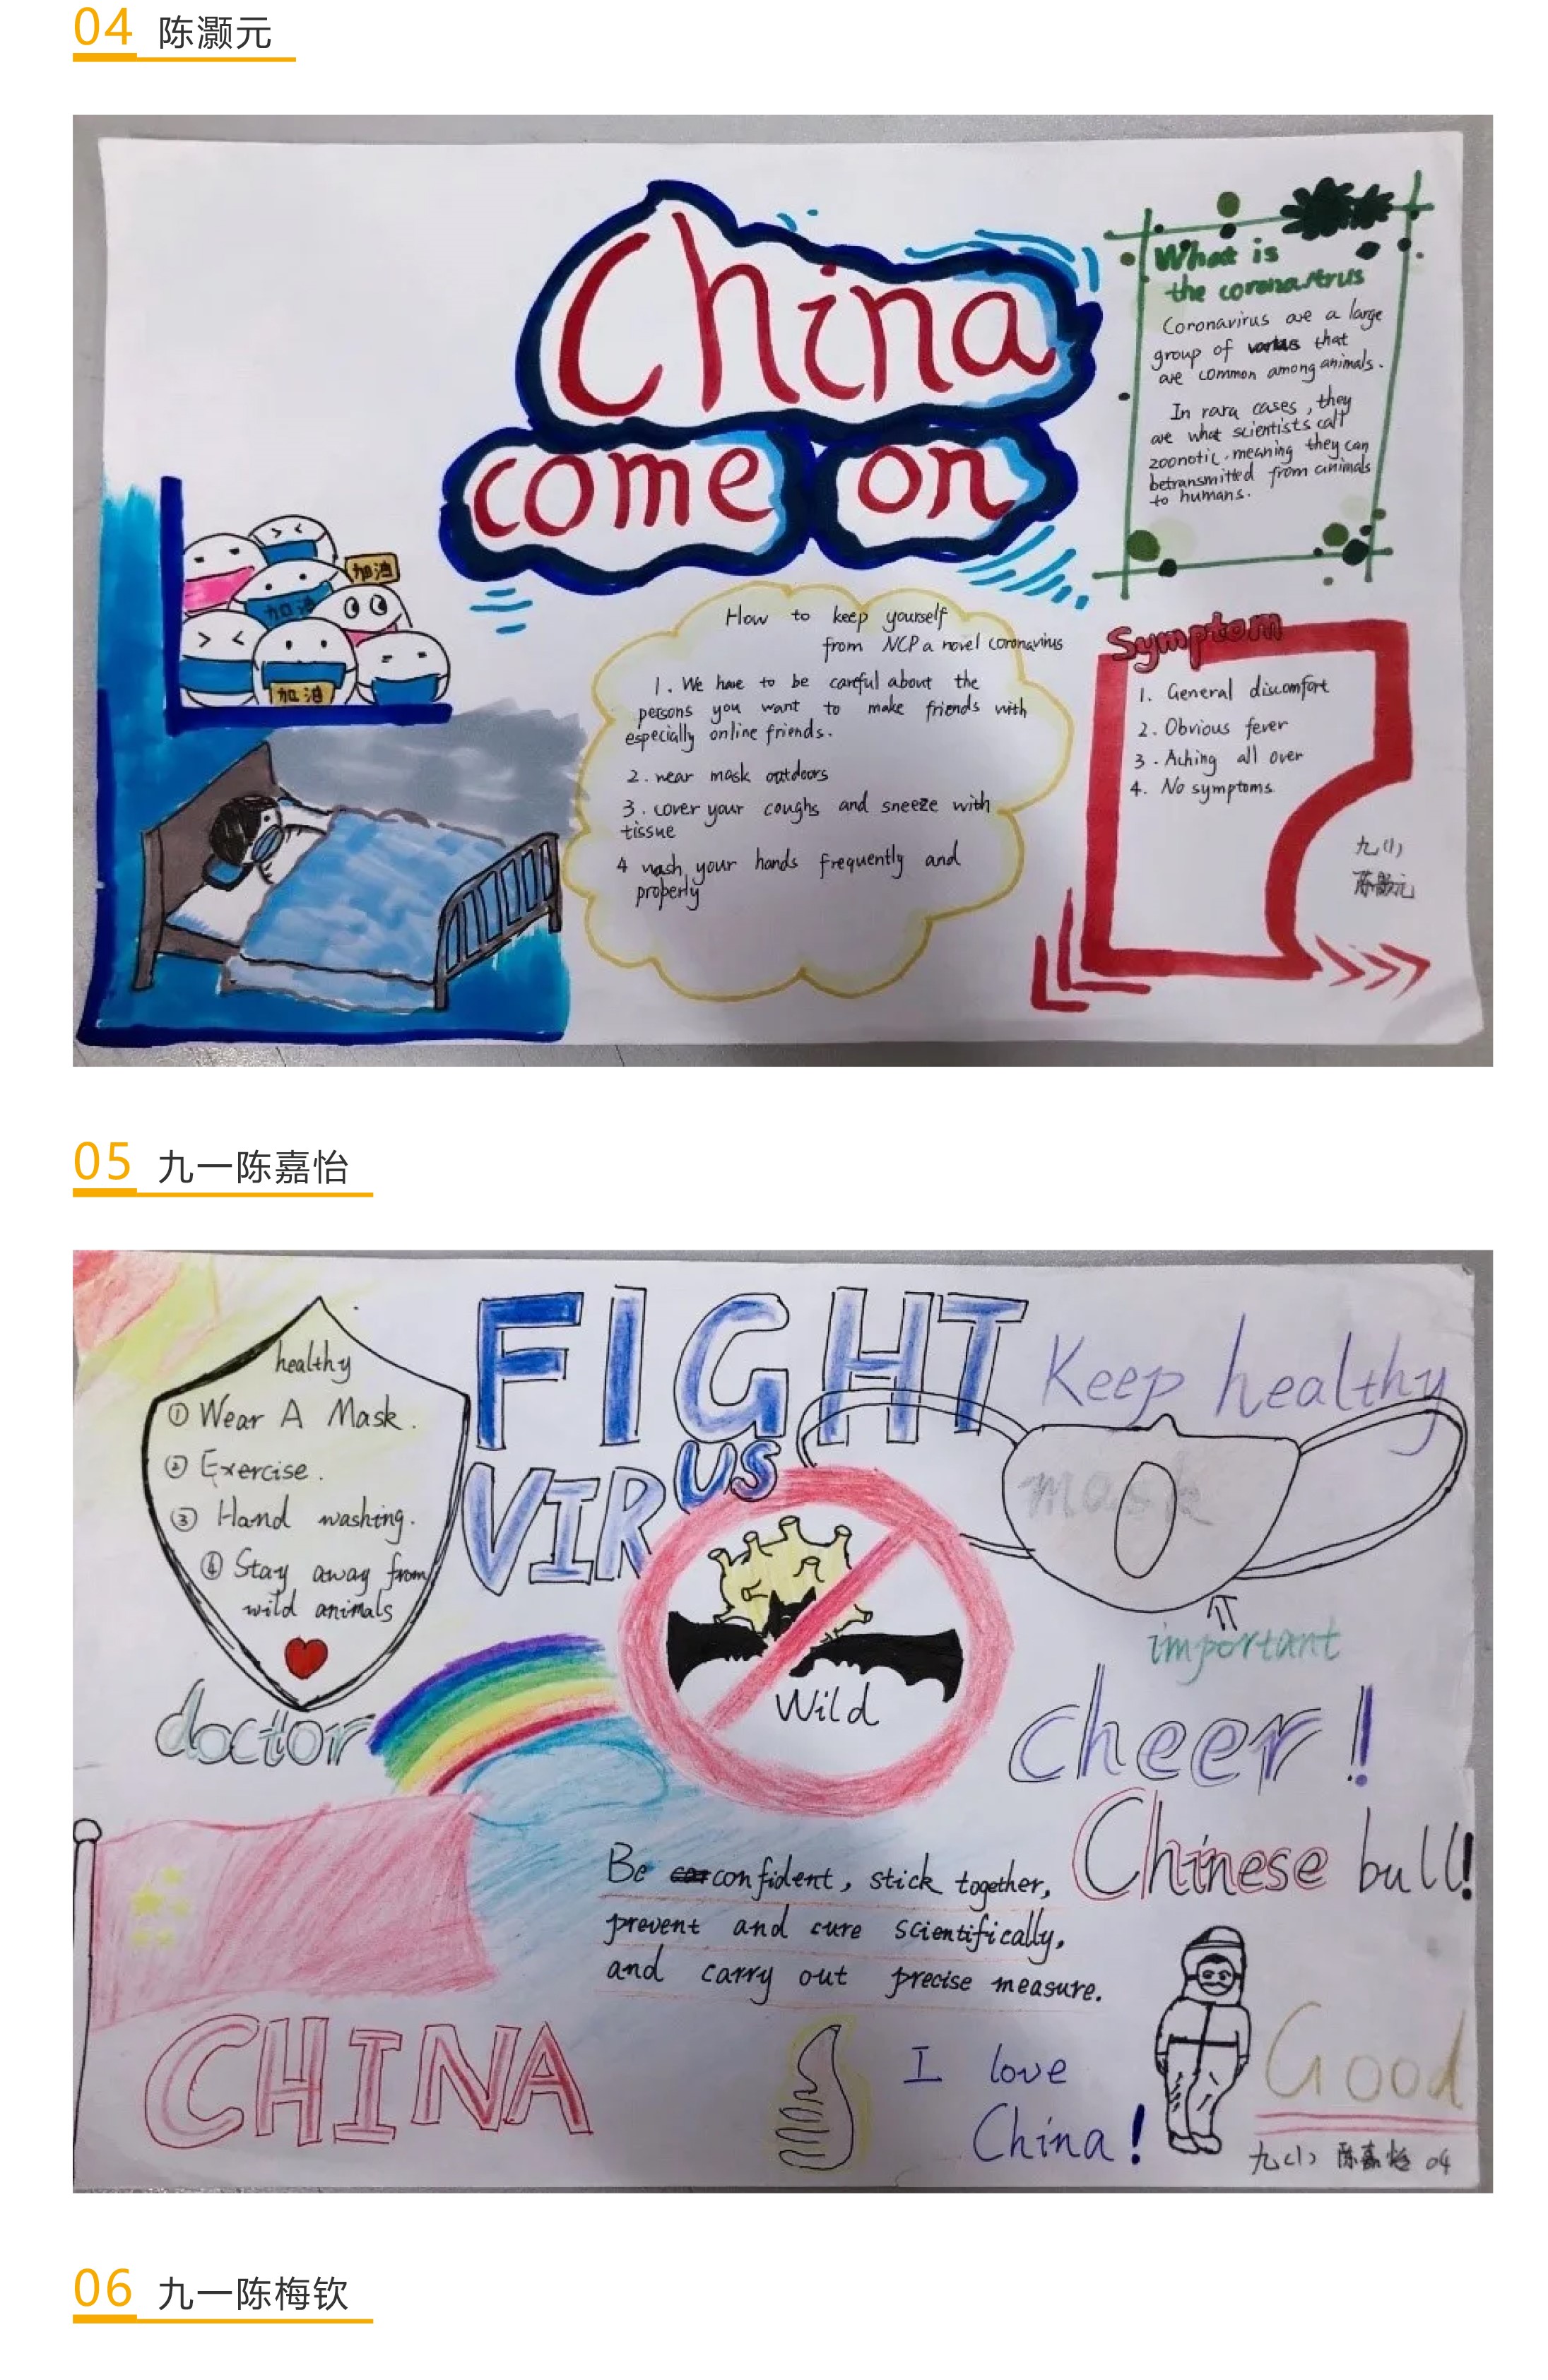 04 陈灏元
China
come on
What is
the coronavirus
Coronavirus are a large
group of that
are common among animals.
In rara cases, they
are what scientists call
zoonotic, meaning they can
betransmitted from animals
to humans.
加油
加油
加油
How to keep yourself
from NCP a novel coronavirus
1. We have to be careful about the
persons you want to make friends with
especially online friends.
2. wear mask outdoors
3. cover your coughs and sneeze with
tissue
4 wash your hands frequently and
properly
Symptom
1. General discomfort
2. Obvious fever
3. Aching all over
4. No symptoms.
九(1)
陈灏元
05 九一陈嘉怡
FIGHT
VIRUS
healthy
① Wear A Mask.
② Exercise.
③ Hand washing.
④ Stay away from
wild animals
Keep healthy
mask
important
Wild
doctor
cheer!
Chinese bull!
Be confident, stick together,
prevent and cure scientifically,
and carry out precise measure.
CHINA
I love
China!
Good
九(1) 陈嘉怡 04
06 九一陈梅钦